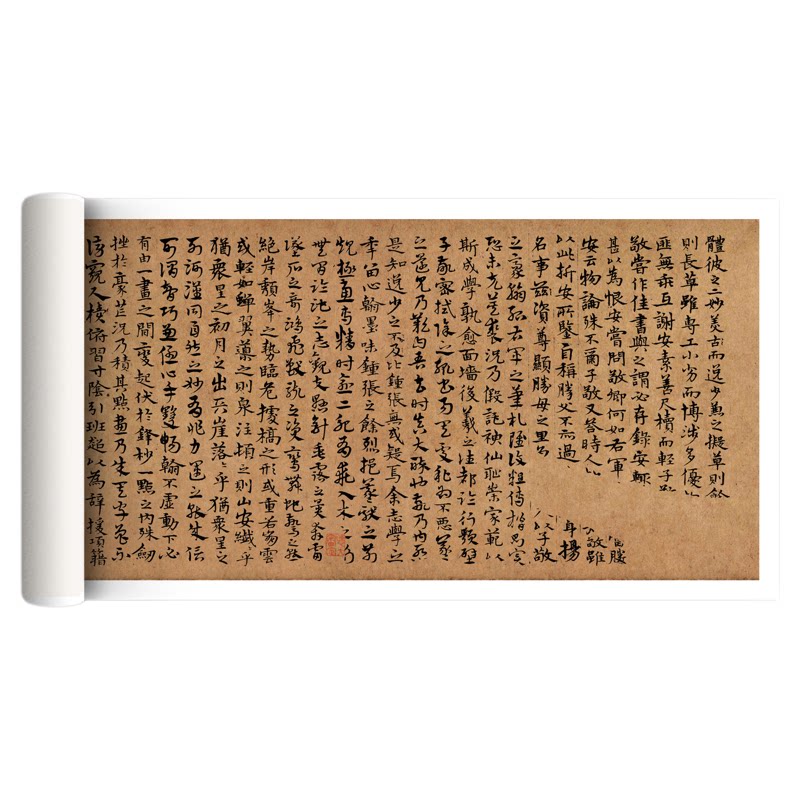 體彼之二妙美古而逸少兼之擬草則餘
則長草雖專工小劣而博涉多優
匪無乖互謝安素善尺牘而輕子敬
敬嘗作佳書與之謂必存錄安輒
甚以為恨安嘗問敬卿何如右軍
安云物論殊不爾子敬又答時人
以此折安所鑒自稱勝父不亦過
名事資尊顯勝母之里
立豪翰紹右軍之筆札雖復粗傳楷則實
恐未克箕裘況乃假託神仙恥崇家範以
斯成學孰愈面墻後羲之往都臨行題壁
子敬密拭除之輒書易其處私為不惡羲
之還見乃歎曰吾去時真大醉也敬乃內慚
是知逸少之不及比鍾張無或疑焉余志學之
年留心翰墨味鍾張之餘烈挹羲獻之前
規極慮專精時逾二紀有乖入木之術
無間臨池之志觀夫懸針垂露之異奔雷
墜石之奇鴻飛獸駭之姿鸞舞蛇驚之態
絕岸頹峯之勢臨危據槁之形或重若崩雲
或輕如蟬翼導之則泉注頓之則山安纖乎
猶眾星之初月之出天崖落乎猶眾星之
列河漢同自然之妙有非力運之能成信
可謂智巧兼優心手雙暢翰不虛動下必
有由一畫之間變起伏於鋒杪一點之內殊衄
挫於豪芒況乃積其點畫乃成其字曾不
傍窺尺牘俯習寸陰引班超以為辭援項籍
勝
敬雖
身揚
以子敬